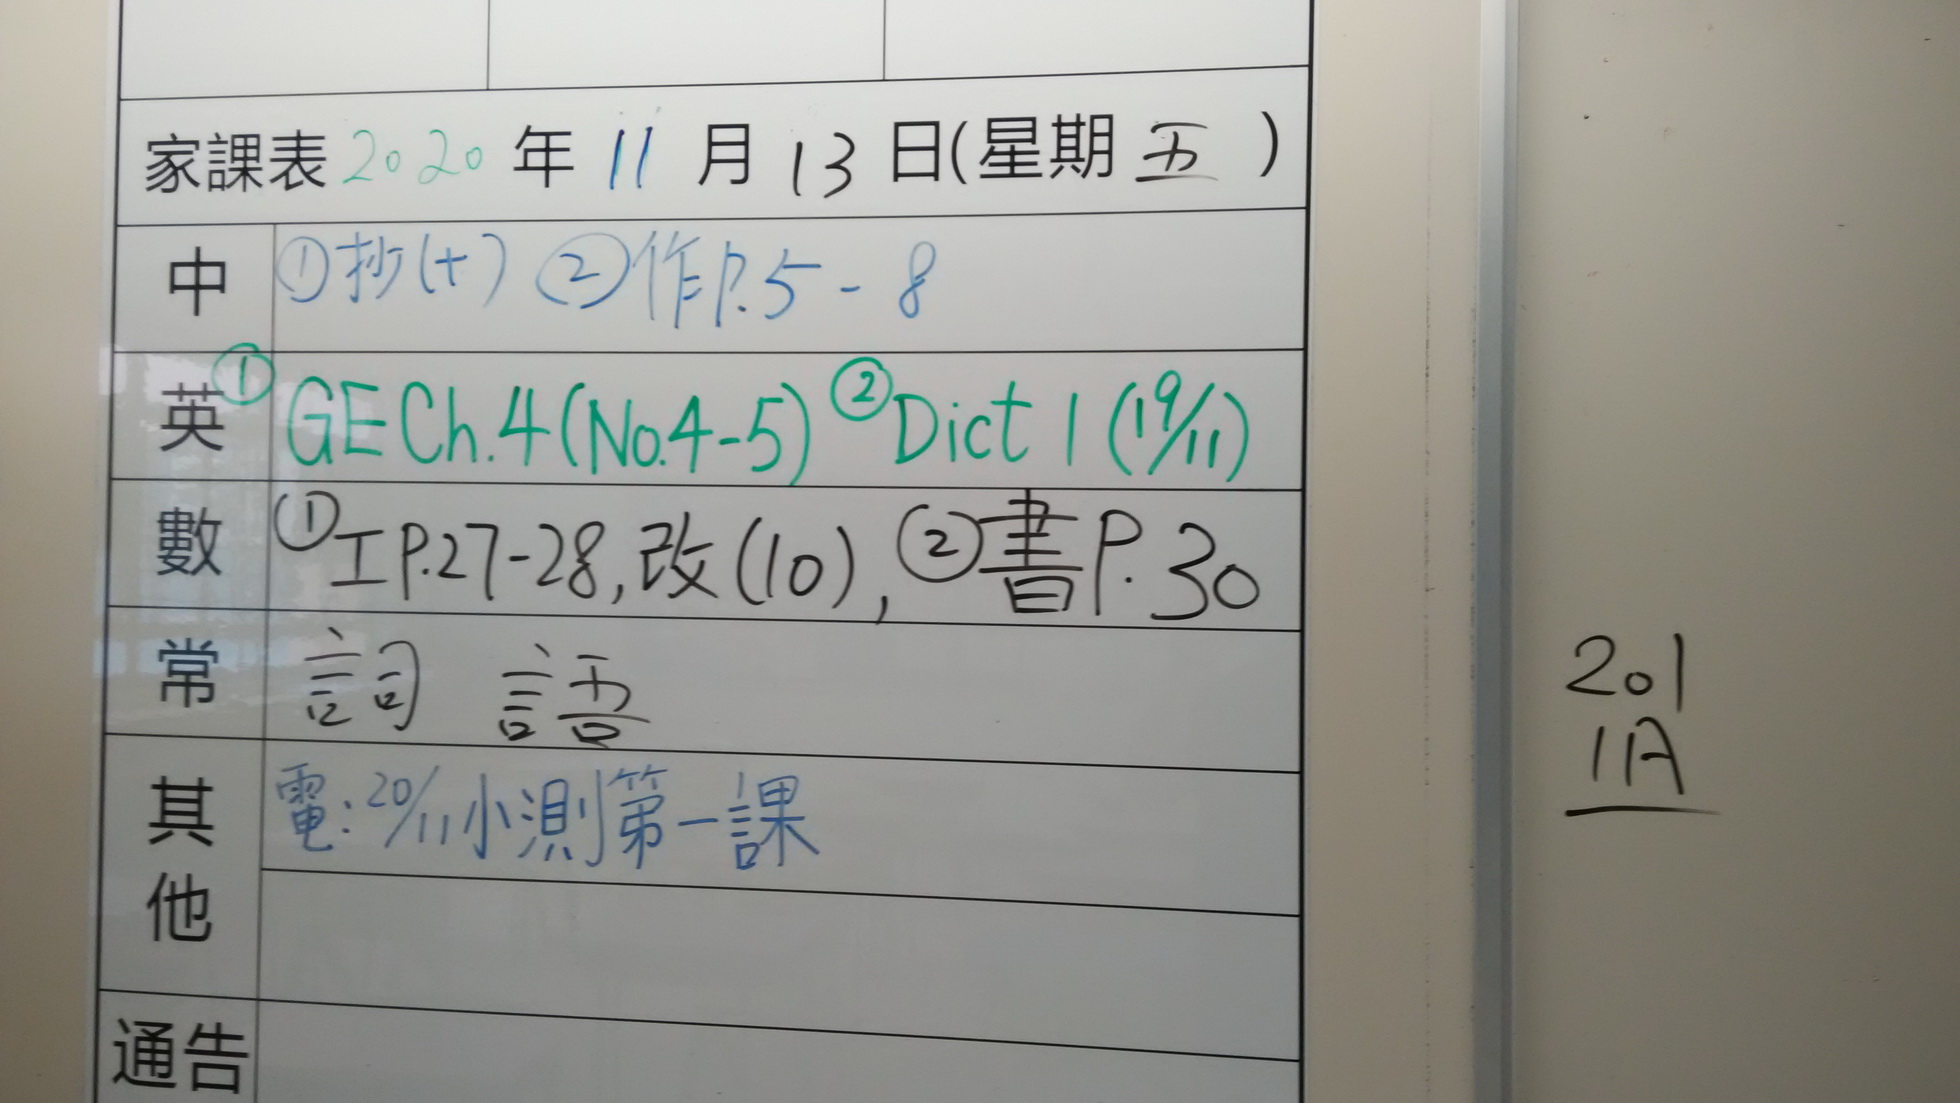 家課表 2020 年 11 月 13 日(星期 五 )
中 ①抄(十) ②作P.5-8
英 ①GE Ch.4(No.4-5) ②Dict 1 (19/11)
數 ①工P.27-28,改(10), ②書P.30
常 詞 語
其他 電:20/11小測第一課
通告
201
1A